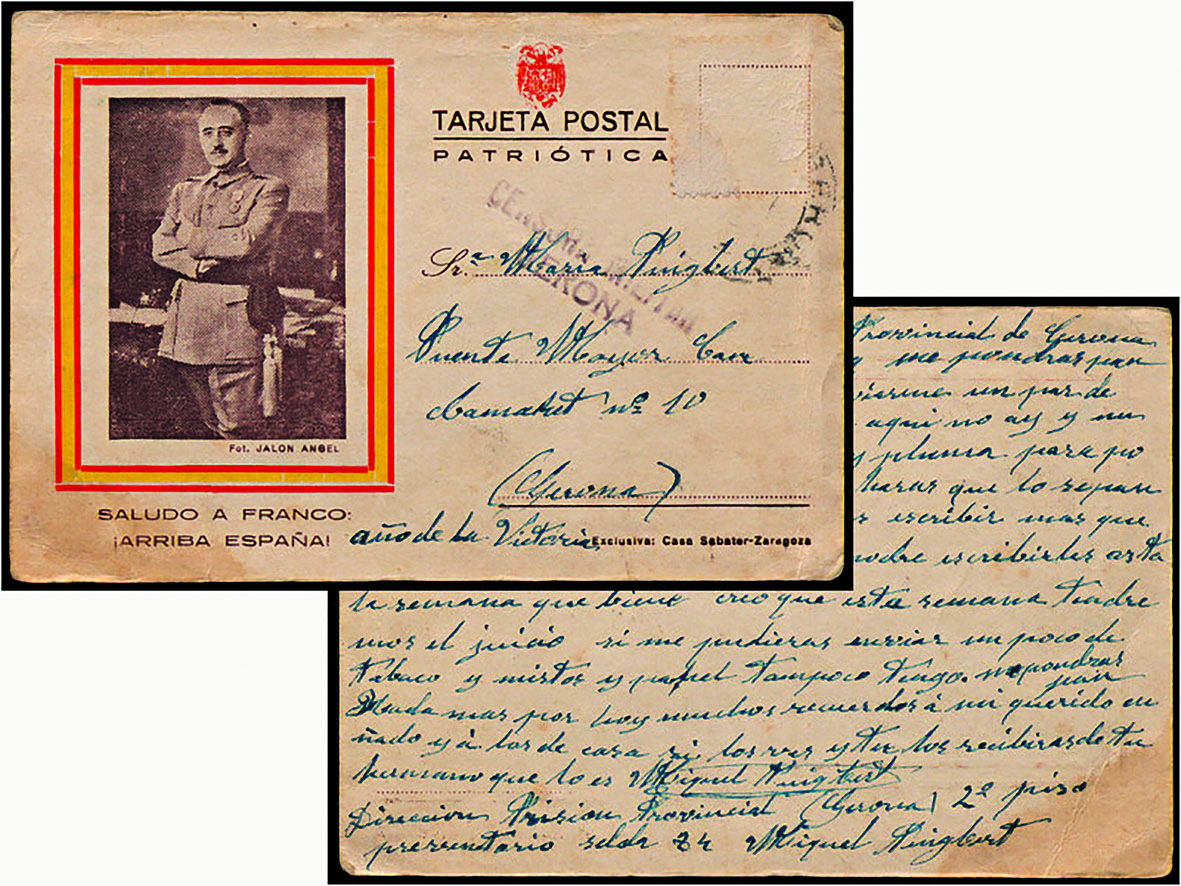 TARJETA POSTAL
PATRIÓTICA
CENSURA MILITAR
GERONA
Sr.ª Maria Puigbert
Puente Mayor Carr
Camaret nº 10
(Gerona)
Fot. JALON ANGEL
SALUDO A FRANCO:
¡ARRIBA ESPAÑA! año de la Victoria
Exclusiva: Casa Sabater-Zaragoza
Provincial de Gerona
y me pondras pan
un par de
aqui no ay y un
pluma para po
haras que lo sepan
escribir mas que
podre escribirles asta
la semana que biene creo que esta semana tendre
mos el juicio si me pudieras enviar un poco de
Tabaco y mistos y papel tampoco tengo. me pondras
pan
Nada mas por hoy muchos recuerdos á mi querido cu
ñado y á los de casa si los ves y tu los recibiras de tu
hermano que lo es Miquel Puigbert
Direccion Prision Provincial (Gerona) 2º piso
selda 24 Miquel Puigbert